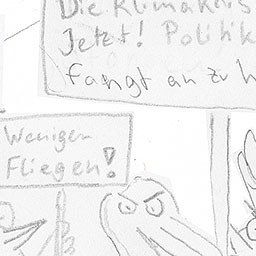 Die Klimakris
Jetzt! Politik
fangt an zu h
Weniger
Fliegen!